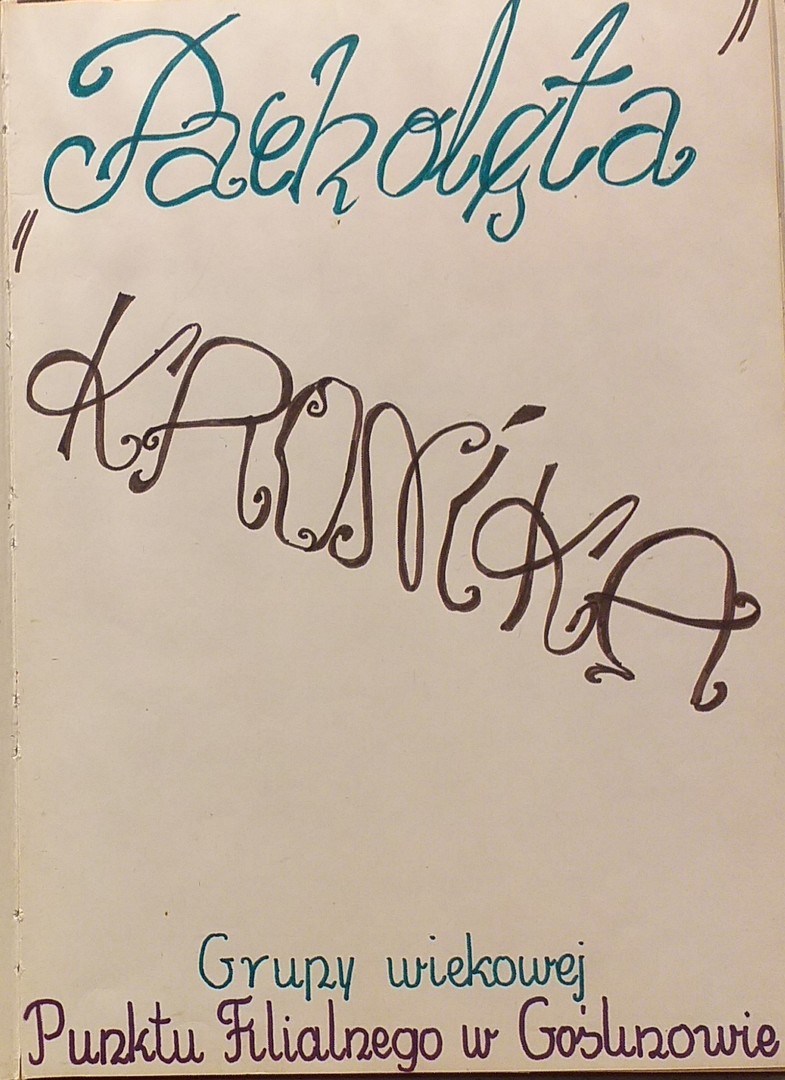 "Pacholęta"
KRONIKA
Grupy wiekowej
Punktu Filialnego w Goślinowie